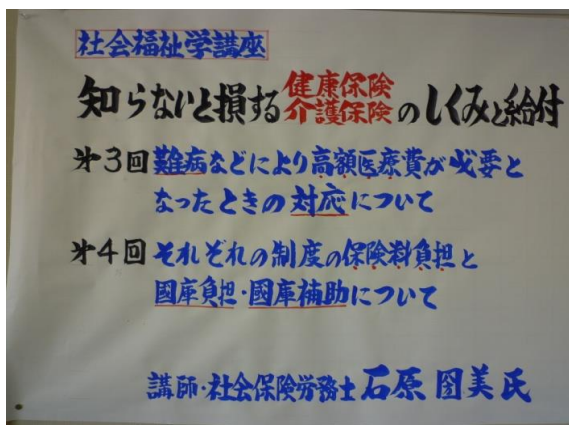 社会福祉学講座
知らないと損する健康保険介護保険のしくみと給付
第3回難病などにより高額医療費が必要と
なったときの対応について
第4回それぞれの制度の保険料負担と
国庫負担・國庫補助について
講師・社会保険労務士石原国美氏